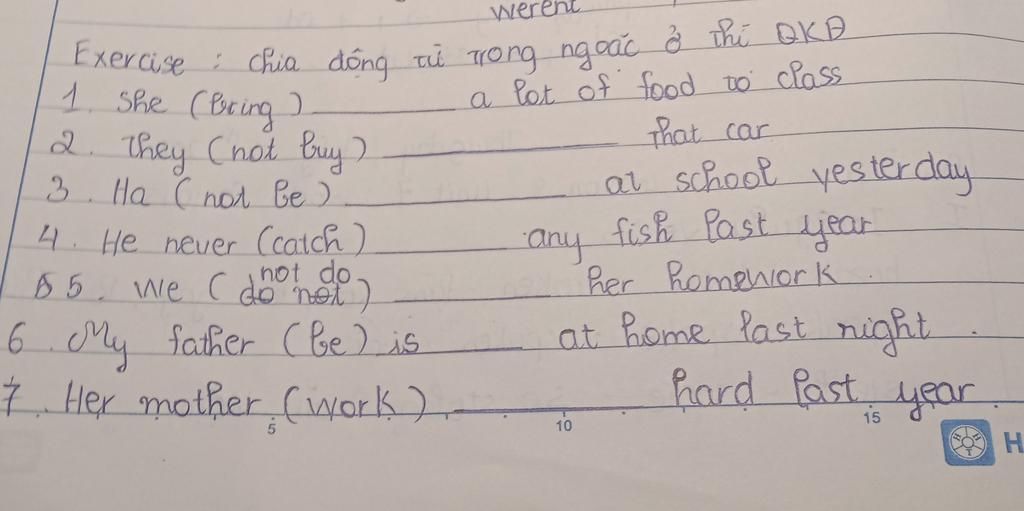 werent
Exercise : chia động từ trong ngoặc ở thì QKĐ
1. She (bring) ________ a lot of food to class
2. They (not buy) ________ that car
3. Ha (not be) ________ at school yesterday
4. He never (catch) ________ any fish last year
5. We (do not) not do ________ her homework.
6. My father (be) is ____ at home last night.
7. Her mother (work) ________ hard last year
5 10 15
H